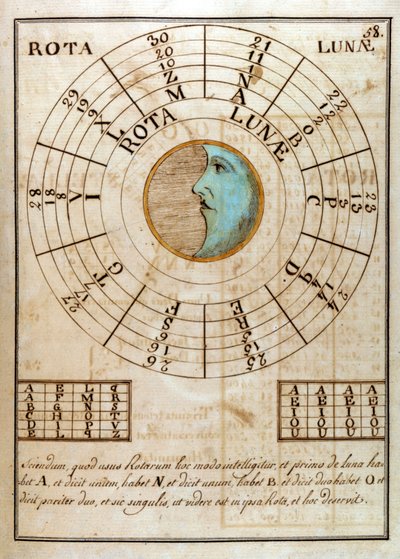 ROTA
LUNÆ
58.
ROTA LUNÆ
21 11 N A
22 O B
23 13 P C
24 14 q D
25 15 R E
26 16 S F
27 17 T G
28 18 V I
29 19 X L
30 20 10 Z M
A E L q
A F M R
B G N S
C H O T
D I P V
E L q Z
A A A A
E E E E
I I I I
O O O O
U U U U
Sciendum, quod usus Rotarum hoc modo intelligitur, et primo de luna ha=
bet A, et dicit unum, habet N, et dicit unum, habet B, et dicit duo habet O et
dicit pariter duo, et sic singulis, ut videre est in ipsa Rota, et hoc deservit.